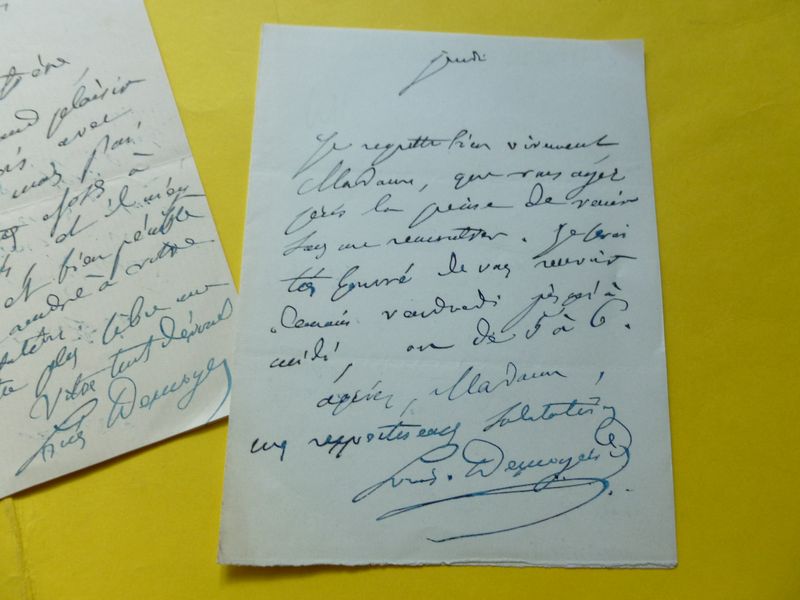 jeudi
Je regrette bien vivement
Madame, que vous ayez
pris la peine de venir
sans me rencontrer. Je serai
très honoré de vous recevoir
demain vendredi jusqu'à
midi, ou de 5 à 6.
agréez, Madame,
mes respectueuses salutations
Louis Desnoyers
plaisir
avec
mais
à
et il m'est
et bien pénible
rendre à votre
plus libre
Votre tout dévoué
Louis Desnoyers